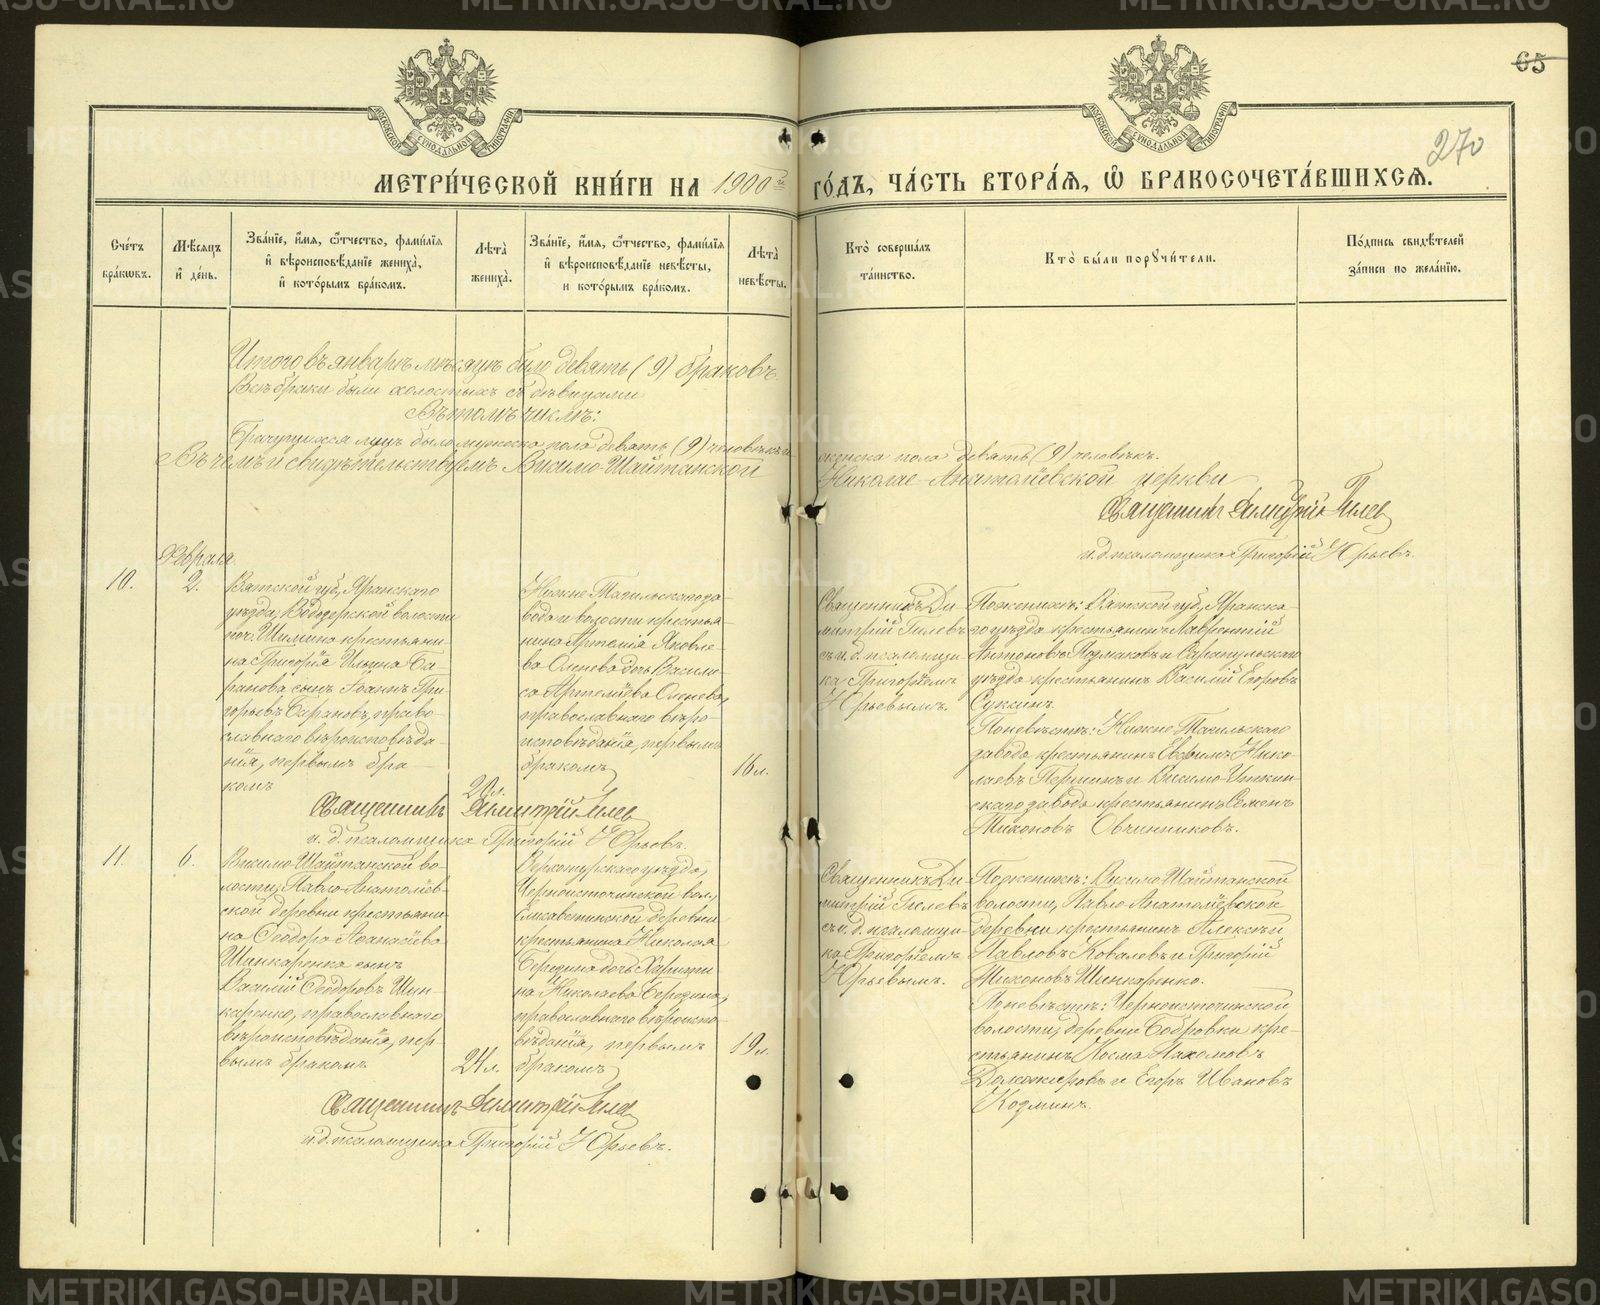 65
270
МОСКОВСКОЙ СѴНОДАЛЬНОЙ ТИПОГРАФІИ
МОСКОВСКОЙ СѴНОДАЛЬНОЙ ТИПОГРАФІИ
МЕТРИ́ЧЕСКОЙ КНИ́ГИ НА 1900й ГО́ДЪ, ЧА́СТЬ ВТОРА́Я, Ѿ БРАКОСОЧЕТА́ВШИХСЯ.
Сче́тъ бра́ковъ.
Мѣ́сяцъ и҆ де́нь.
Зва́нїе, и҆́мя, ѻ҆́тчество, фами́лїя
и҆ вѣроисповѣ́данїе жениха̀,
и҆ кото́рымъ бра́комъ.
Лѣта̀ жениха̀.
Зва́нїе, и҆́мя, ѻ҆́тчество, фами́лїя
и҆ вѣроисповѣ́данїе невѣ́сты,
и кото́рымъ бра́комъ.
Лѣта̀ невѣ́сты.
Кто̀ соверша́лъ
та́инство.
Кто̀ бы́ли поручи́тели.
По́дпись свидѣ́телей
за́писи по жела́нїю.
Итого въ январѣ мѣсяцѣ было девять (9) браковъ.
Всѣ браки были холостыхъ съ дѣвицами
Въ томъ числѣ:
Брачущихся лицъ было мужеска пола девять (9) человѣкъ и
женска пола девять (9) человѣкъ.
Въ чемъ и свидѣтельствуемъ Висимо-Шайтанской
Николае-Анатоліевской церкви
Священникъ Димитрій Гилев
и. д. псаломщика Григорій Юрьевъ.
Февраля
10.
2.
Вятской губ., Яранскаго
уѣзда, волости
поч. Шилино крестьяни-
на Григорія Ильина Ба-
ранова сынъ Іоаннъ Гри-
горьевъ Барановъ, право-
славнаго вѣроисповѣда-
нія, первымъ бра-
комъ
20 л.
Нижне-Тагильскаго за-
вода и волости крестья-
нина Артемія Яковле-
ва Оленева дочь Васили-
са Артеміева Оленева,
православнаго вѣро-
исповѣданія, первымъ
бракомъ
16 л.
Священникъ Ди-
митрій Гилевъ
съ и. д. псаломщи-
ка Григоріемъ
Юрьевымъ.
По женихѣ: Вятской губ., Яранска-
го уѣзда крестьянинъ Лаврентій
Антоновъ и Сарапульскаго
уѣзда крестьянинъ Василій Егоровъ
Суксинъ.
По невѣстѣ: Нижне-Тагильскаго
завода крестьянинъ Евфимъ Нико-
лаевъ Перминъ и Висимо-Уткин-
скаго завода крестьянинъ Семенъ
Тихоновъ Овчинниковъ.
Священникъ Димитрій Гилев
и. д. псаломщика Григорій Юрьевъ.
11.
6.
Висимо-Шайтанской во-
лости, Павло-Анатоліев-
ской деревни крестьяни-
на Ѳеодора Аѳанасіева
Шинкаренка сынъ
Василій Ѳеодоровъ Шин-
каренко, православнаго
вѣроисповѣданія, пер-
вымъ бракомъ
24 л.
Верхотурскаго уѣзда,
Черноисточинской вол.,
Елисаветинской деревни
крестьянина Николая
Бородина дочь Харити-
на Николаева Бородина,
православнаго вѣроиспо-
вѣданія, первымъ
бракомъ
19 л.
Священникъ Ди-
митрій Гилевъ
съ и. д. псаломщи-
ка Григоріемъ
Юрьевымъ.
По женихѣ: Висимо-Шайтанской
волости, Павло-Анатоліевской
деревни крестьянинъ Алексѣй
Павловъ Ковалевъ и Григорій
Тихоновъ Шинкаренко.
По невѣстѣ: Черноисточинской
волости, деревни Бобровки кре-
стьянинъ Косма Пахомовъ
и Егоръ Ивановъ
Козминъ.
Священникъ Димитрій Гилев
и. д. псаломщика Григорій Юрьевъ.
METRIKI.GASO-URAL.RU